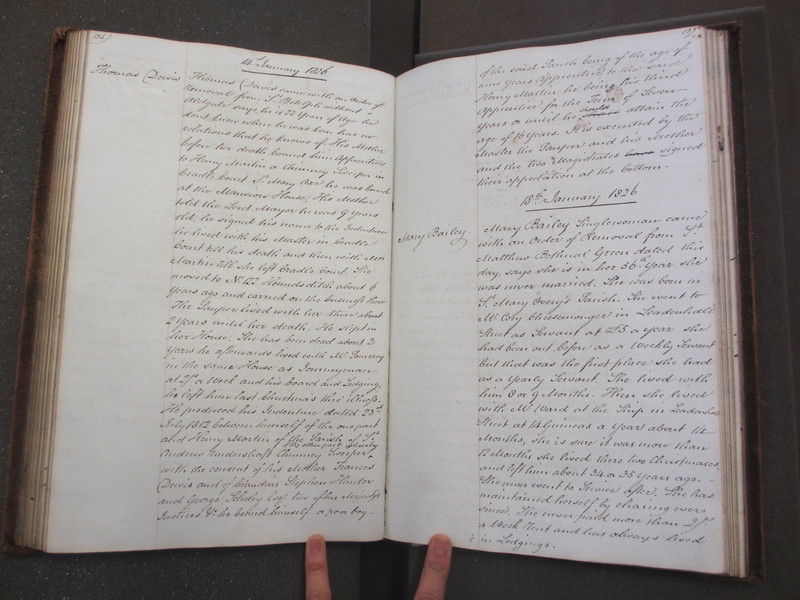 14th January 1826
Thomas Dewis
Thomas Dewis came with an Order of
Removal from St. Botolph without
Aldgate says he is 22 Years of Age he
dont know where he was born has no
relations that he knows of, His Mother
before her death bound him Apprentice
to Henry Martin a Chimney Sweeper in
Cradle Court St. Mary Axe he was bound
at the Mansion House, His Mother
told the Lord Mayor he was 9 years
old, he signed his name to the Indenture
he lived with his Master in Cradle
Court till his death and then with Mrs
Martin till she left Cradle Court. She
moved to No. 122 Houndsditch about 6
Years ago and carried on the business there
The Pauper lived with her there about
2 Years until her death. He Slept in
her House. She has been dead about 2
Years he afterwards lived with Mr.
in the same House as Journeyman
at 2/- a Week and his board and Lodging,
he left him last Christmas thro' illness.
He produced his Indenture dated 23rd
July 1812 between himself of the one part
and Henry Martin of the Parish of St.
Andrew Undershaft Chimney Sweeper
of the other part whereby
with the consent of his Mother Frances
Dewis and of Claudius Stephen Hunter
and George Esq. two of his Majesty's
Justices &c. he bound himself a poor boy
of the said Parish being of the age of
nine Years Apprentice to the said
Henry Martin he being his third
Apprentice for the Term of Seven
Years or until he should attain the
age of 16 Years. It is executed by the
Master the Pauper and his Mother
and the two Magistrates signed
their appellation at the bottom.
18th January 1826
Mary Bailey
Mary Bailey Singlewoman came
with an Order of Removal from St.
Matthew Bethnal Green dated this
day, says she is in her 56th Year she
was never married. She was born in
St. Mary Overy's Parish. She went to
Mr. Coy Cheesemonger in Leadenhall
Street as Servant at £5 a year she
had been out before as a Weekly Servant
but that was the first place she had
as a Yearly Servant. She lived with
him 8 or 9 Months. Then she lived
with Mr. Ward at the Ship in Leadenhall
Street at 14 Guineas a Year about 14
Months, she is sure it was more than
12 Months she lived there two Christmases,
and left him about 34 or 35 Years ago.
She never went to Service after. She has
maintained herself by charing ever
since. She never paid more than 2/-
a Week Rent and has always lived
in Lodgings.